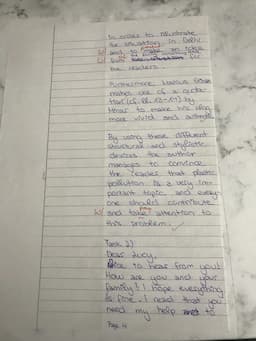 In order to illustrate
the situation in Delhi
and to
from for
the readers.
Furthermore,
makes use of a
by
to make his
more vivid and
By using these different
structural and stylistic
devices the author
manages to convince
the reader that plastic
pollution is a very im-
portant topic and every-
one should contribute
and attention to
this problem.
Task 2)
Dear Lucy,
Nice to hear from you!
How are you and your
family? I hope everything
is fine. I read that you
need my help to
Page 4